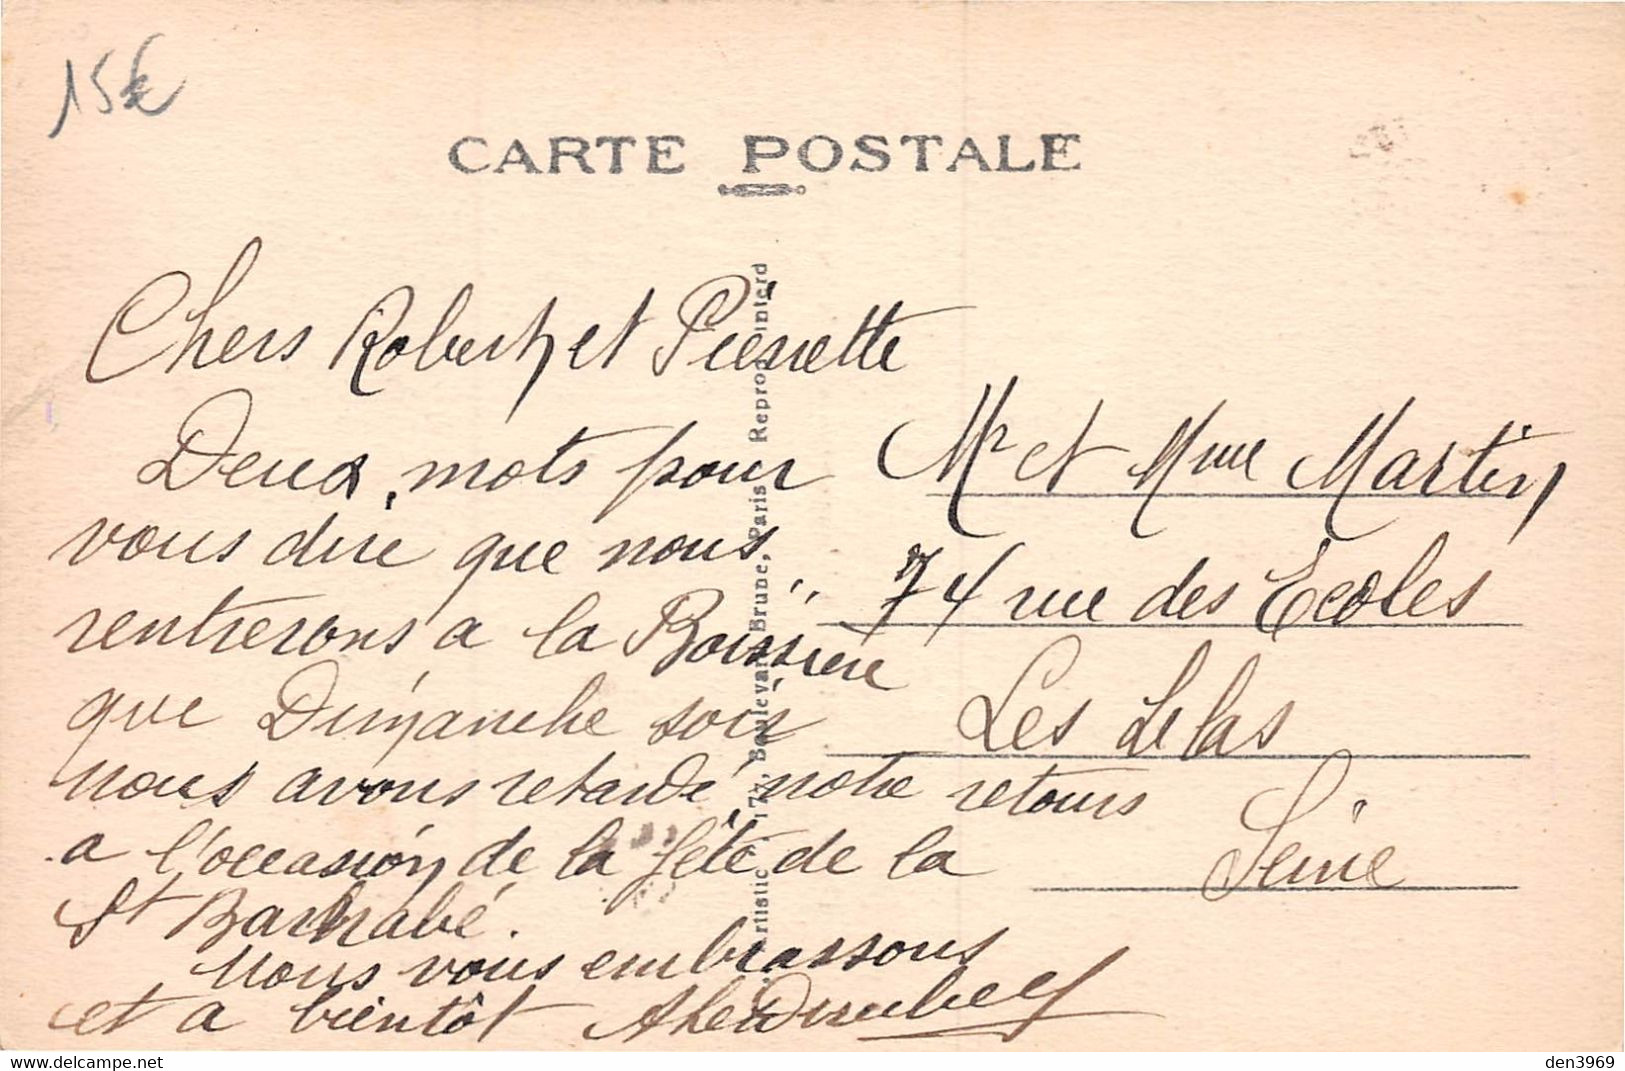 15€
CARTE POSTALE
Chers Robert et Pierrette
Deux mots pour
vous dire que nous
rentrerons a la Boissiere
que Dimanche soir
nous avons retardé notre retour
a l'occasion de la fête de la
St Barnabé.
Nous vous embrassons
et a bientôt
Mr et Mme Martin
74 rue des Ecoles
Les Lilas
Seine
Artistic, 177, Boulevard Brune, Paris Reprod. interd
delcampe.net
den3969